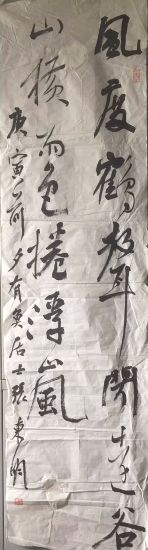 風度鶴聲聞遠谷
山橫雨色捲浮嵐
庚寅前夕有奐居士張東明